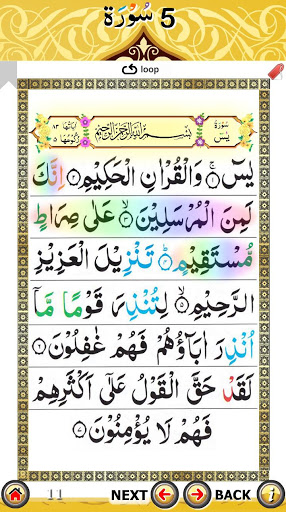 5 سُوْرَة
loop
سُوْرَةُ يٰسٓ
بِسْمِ اللّٰهِ الرَّحْمٰنِ الرَّحِيْمِ
اٰيَاتُهَا ٨٣
رُكُوْعُهَا
يٰسٓ ۝١ وَالْقُرْاٰنِ الْحَكِيْمِ ۝٢ اِنَّكَ
لَمِنَ الْمُرْسَلِيْنَ ۝٣ عَلٰى صِرَاطٍ
مُّسْتَقِيْمٍ ۝٤ تَنْزِيْلَ الْعَزِيْزِ
الرَّحِيْمِ ۝٥ لِتُنْذِرَ قَوْمًا مَّآ
اُنْذِرَ اٰبَآؤُهُمْ فَهُمْ غٰفِلُوْنَ ۝٦
لَقَدْ حَقَّ الْقَوْلُ عَلٰٓى اَكْثَرِهِمْ
فَهُمْ لَا يُؤْمِنُوْنَ ۝٧
11 NEXT BACK i